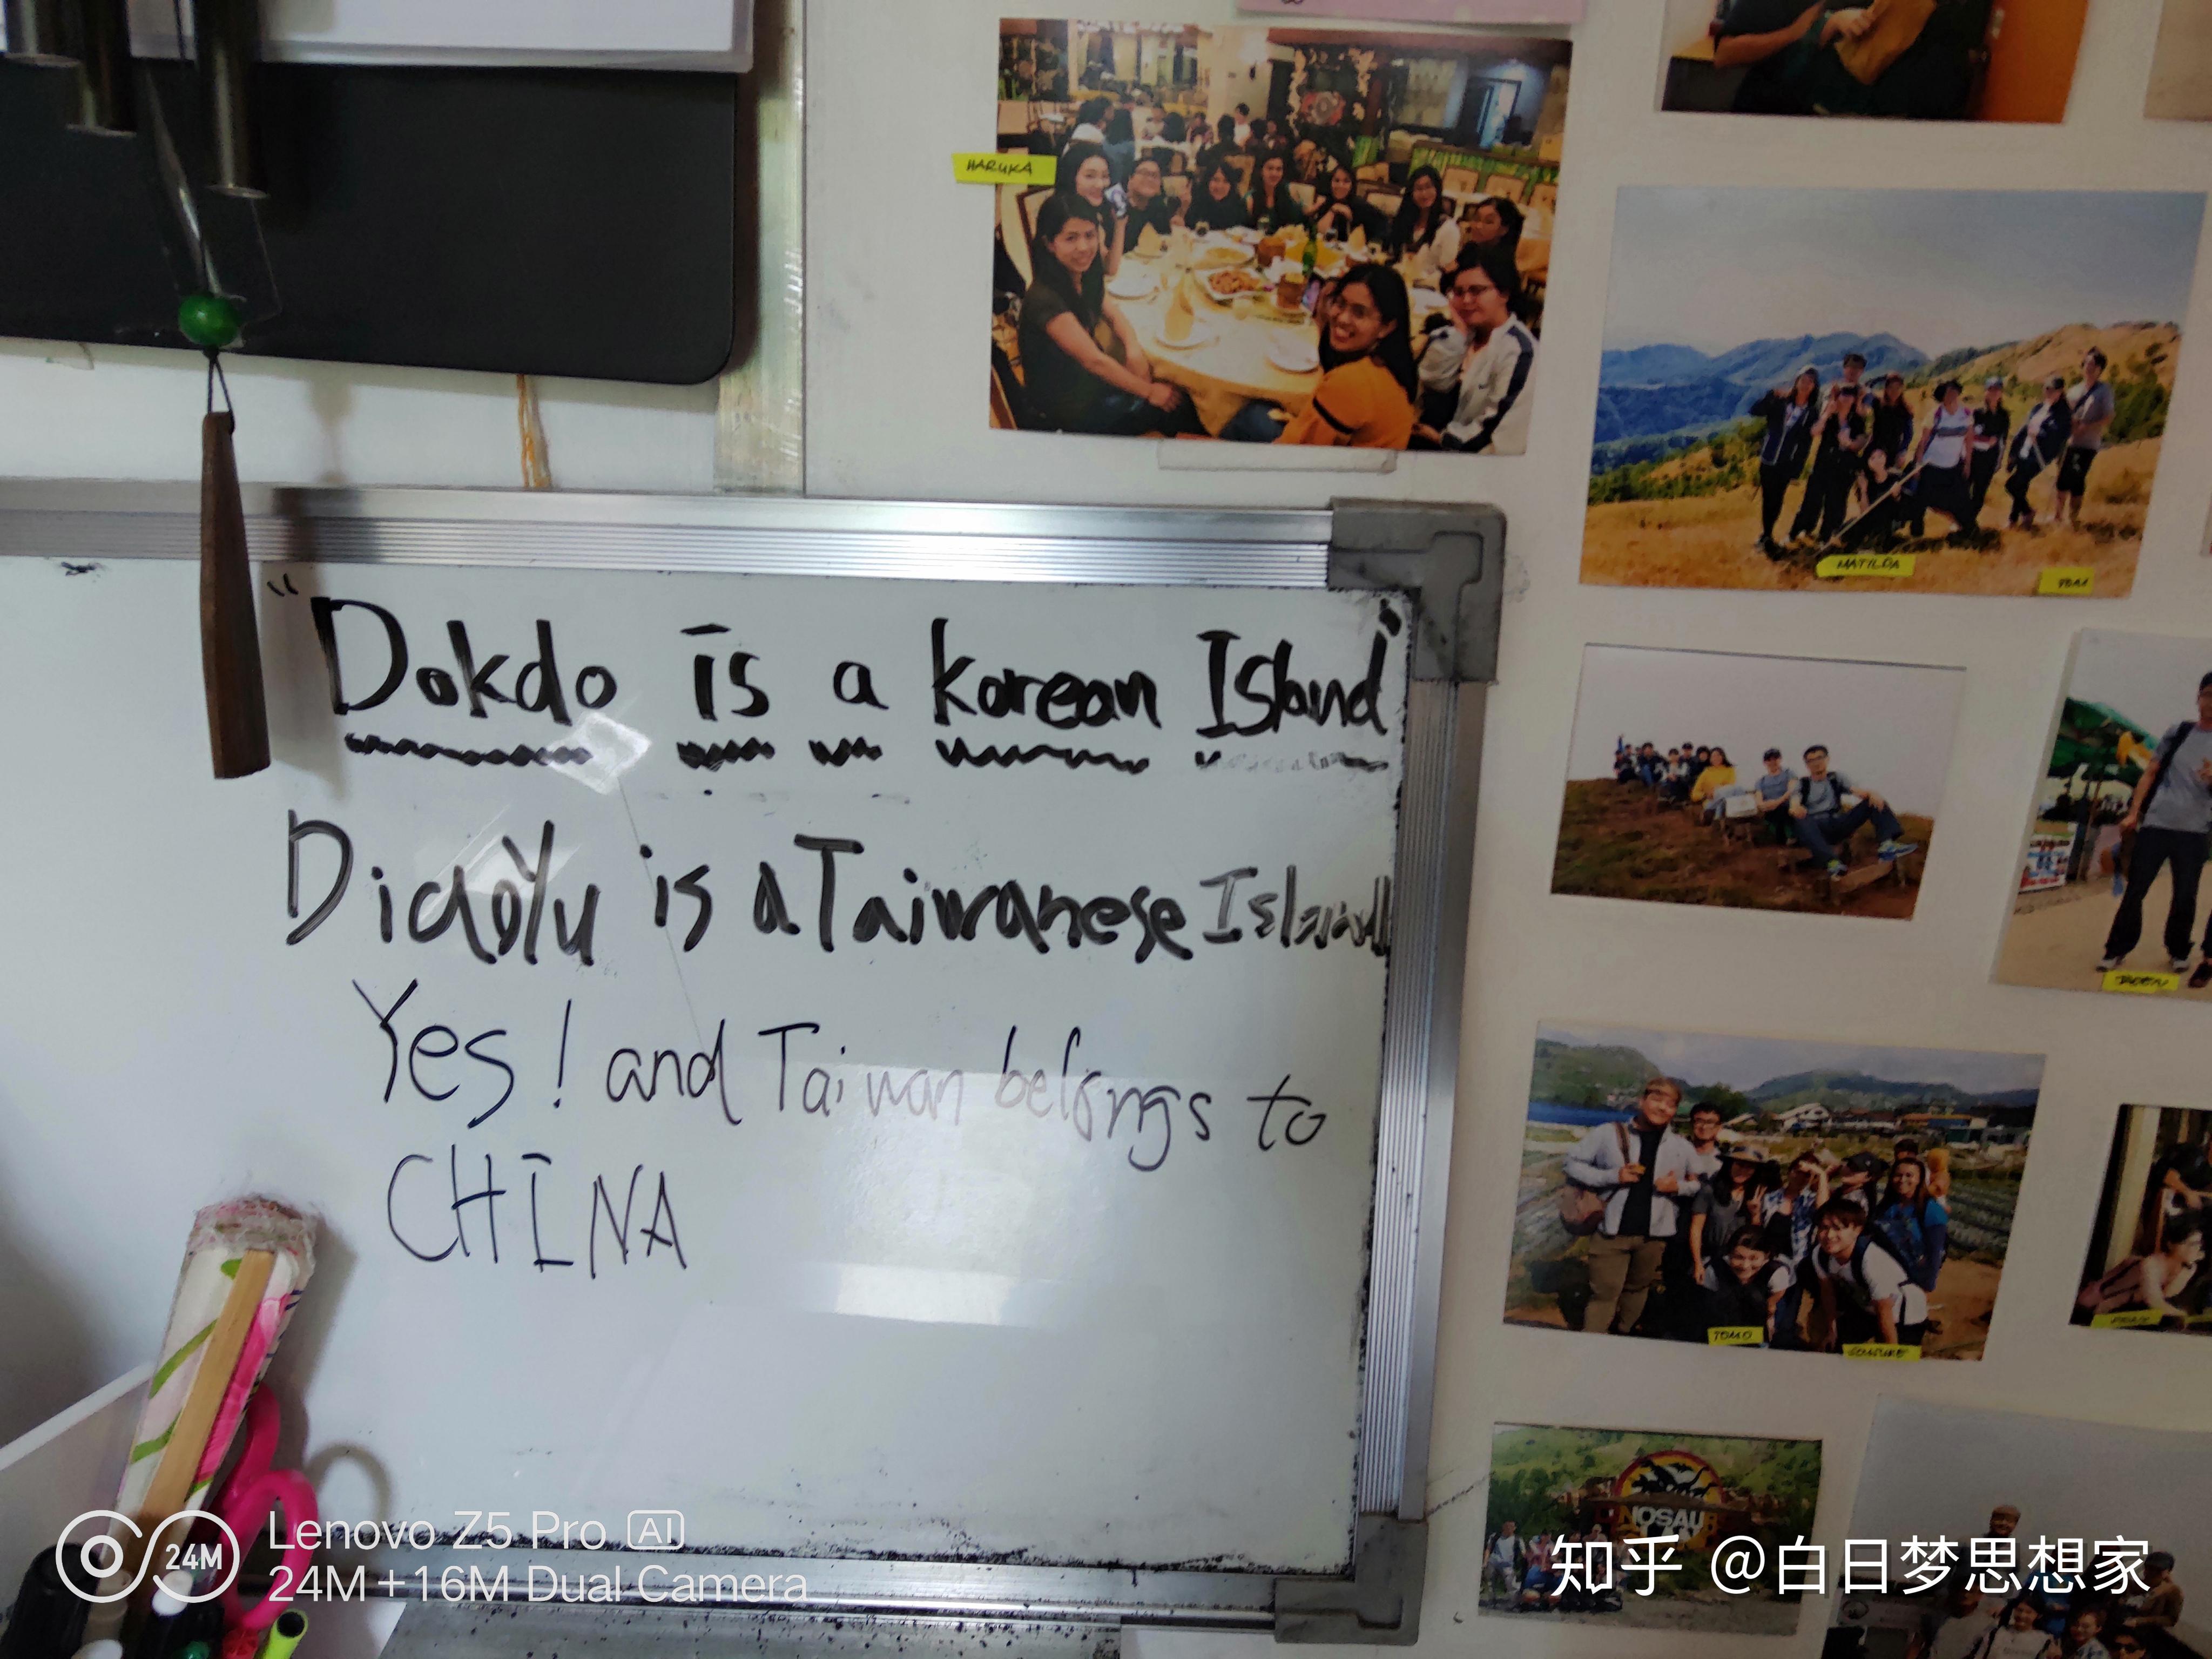 HARUKA
MATILDA
"Dokdo is a korean Island"
DiaoYu is a Taiwanese Island
Yes! and Taiwan belongs to
CHINA
TOMO
NOSAUR
Lenovo Z5 Pro AI
24M
24M+16M Dual Camera
知乎 @白日梦思想家